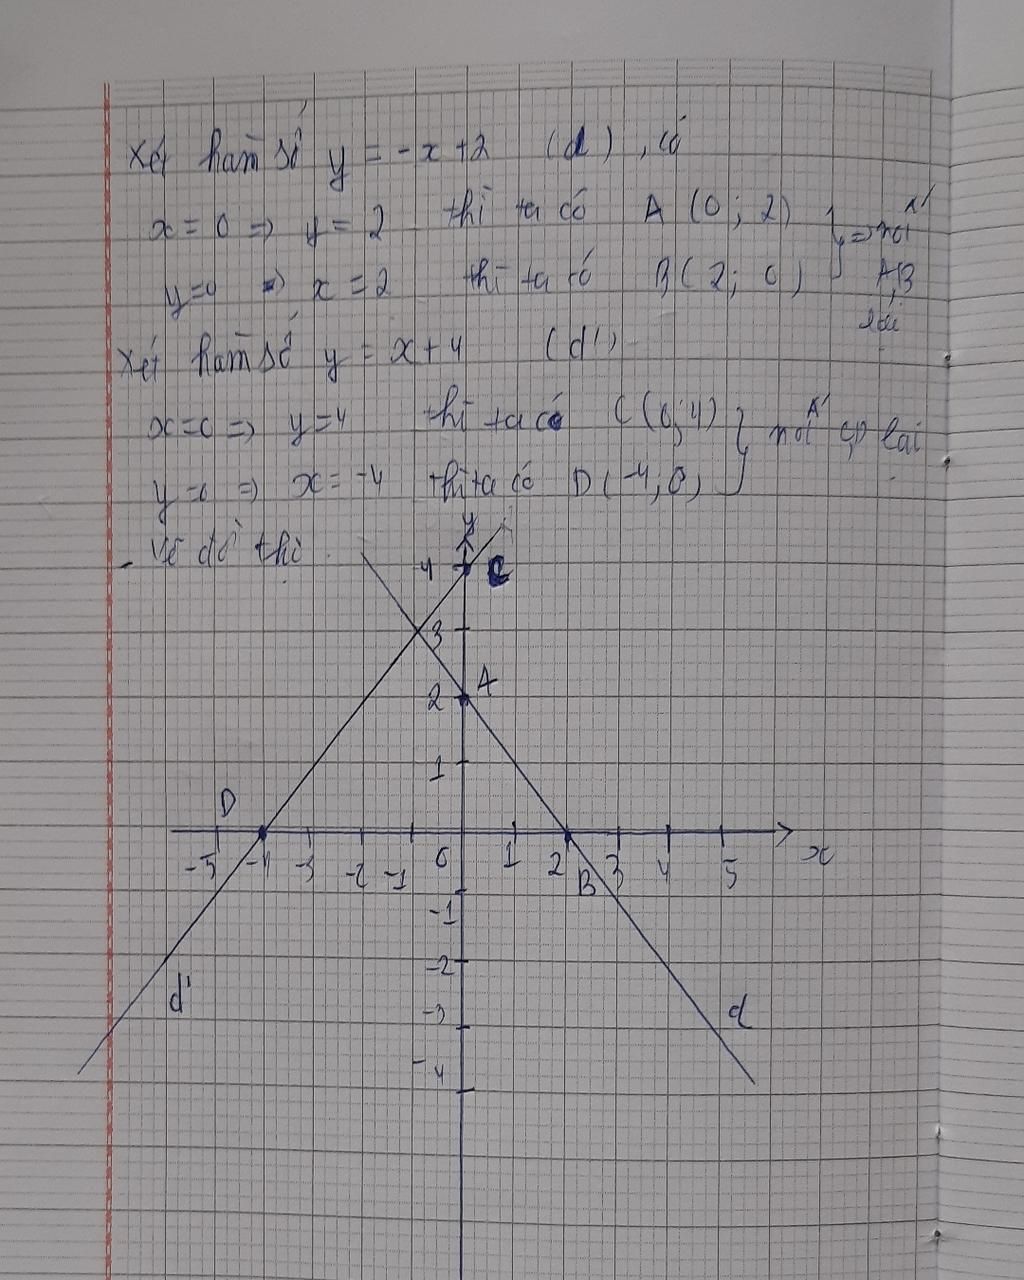 Xét hàm số y = -x +2 (d), có
x = 0 => y = 2 thì ta có A (0 ; 2)
y=0 => x = 2 thì ta có B( 2; 0 )
} => nối
A,B
lại
Xét hàm số y = x+4 (d')
x=0 => y=4 thì ta có C (0;4)
y=0 => x = -4 thì ta có D( -4; 0 )
} nối C,D lại
- Vẽ đồ thị
y
4 C
3
A
2
1
D
-5 -4 -3 -2 -1 0 1 2 3 4 5 x
B
-1
-2
-3
-4
d'
d